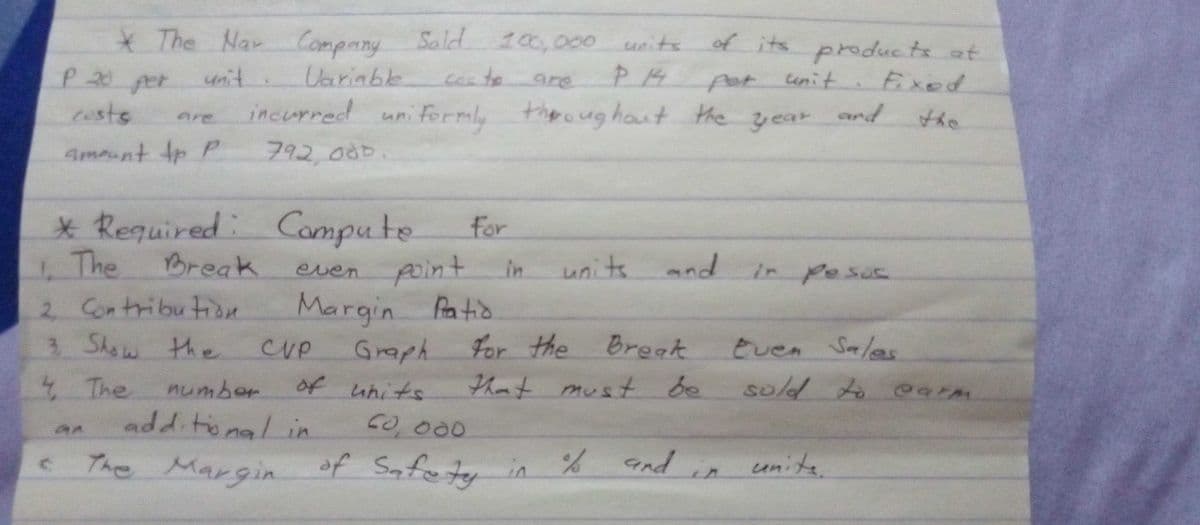 * The Nav Company Sold 100,000 units of its products at
P 20 per unit. Variable costs are P 14 per unit. Fixed
costs are incurred uniformly throughout the year and the
amount tp P 792,000.
* Required: Compute for
1. The Break even point in units and in pesos
2. Contribution Margin Ratio
3. Show the CVP Graph for the Break Even Sales
4. The number of units that must be sold to earm
an additional in 60,000
The Margin of Safety in % and in units.